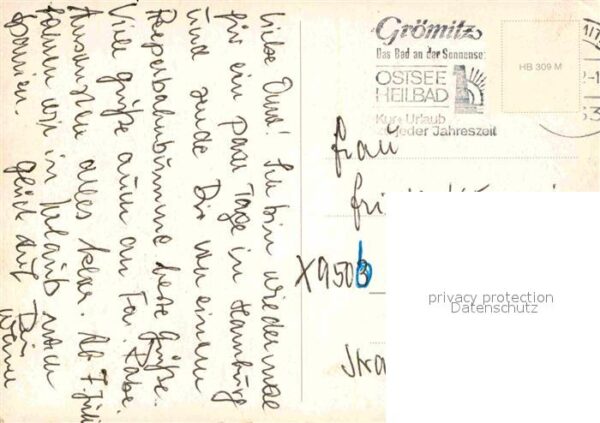 Liebe Omi! Ich bin wieder mal
für ein paar Tage in Hamburg
und sende Dir von einem
Reeperbahnbummel beste Grüße.
Viele Grüße auch an Fa. Rabe.
Ansonsten alles klar. Ab 7. Juli
fahren wir in Urlaub nach
Spanien. Glück auf Dein
Grömitz
Das Bad an der Sonnense
OSTSEE
HEILBAD
Kur + Urlaub
zu jeder Jahreszeit
HB 309 M
Frau
X9506
Stra
privacy protection
Datenschutz